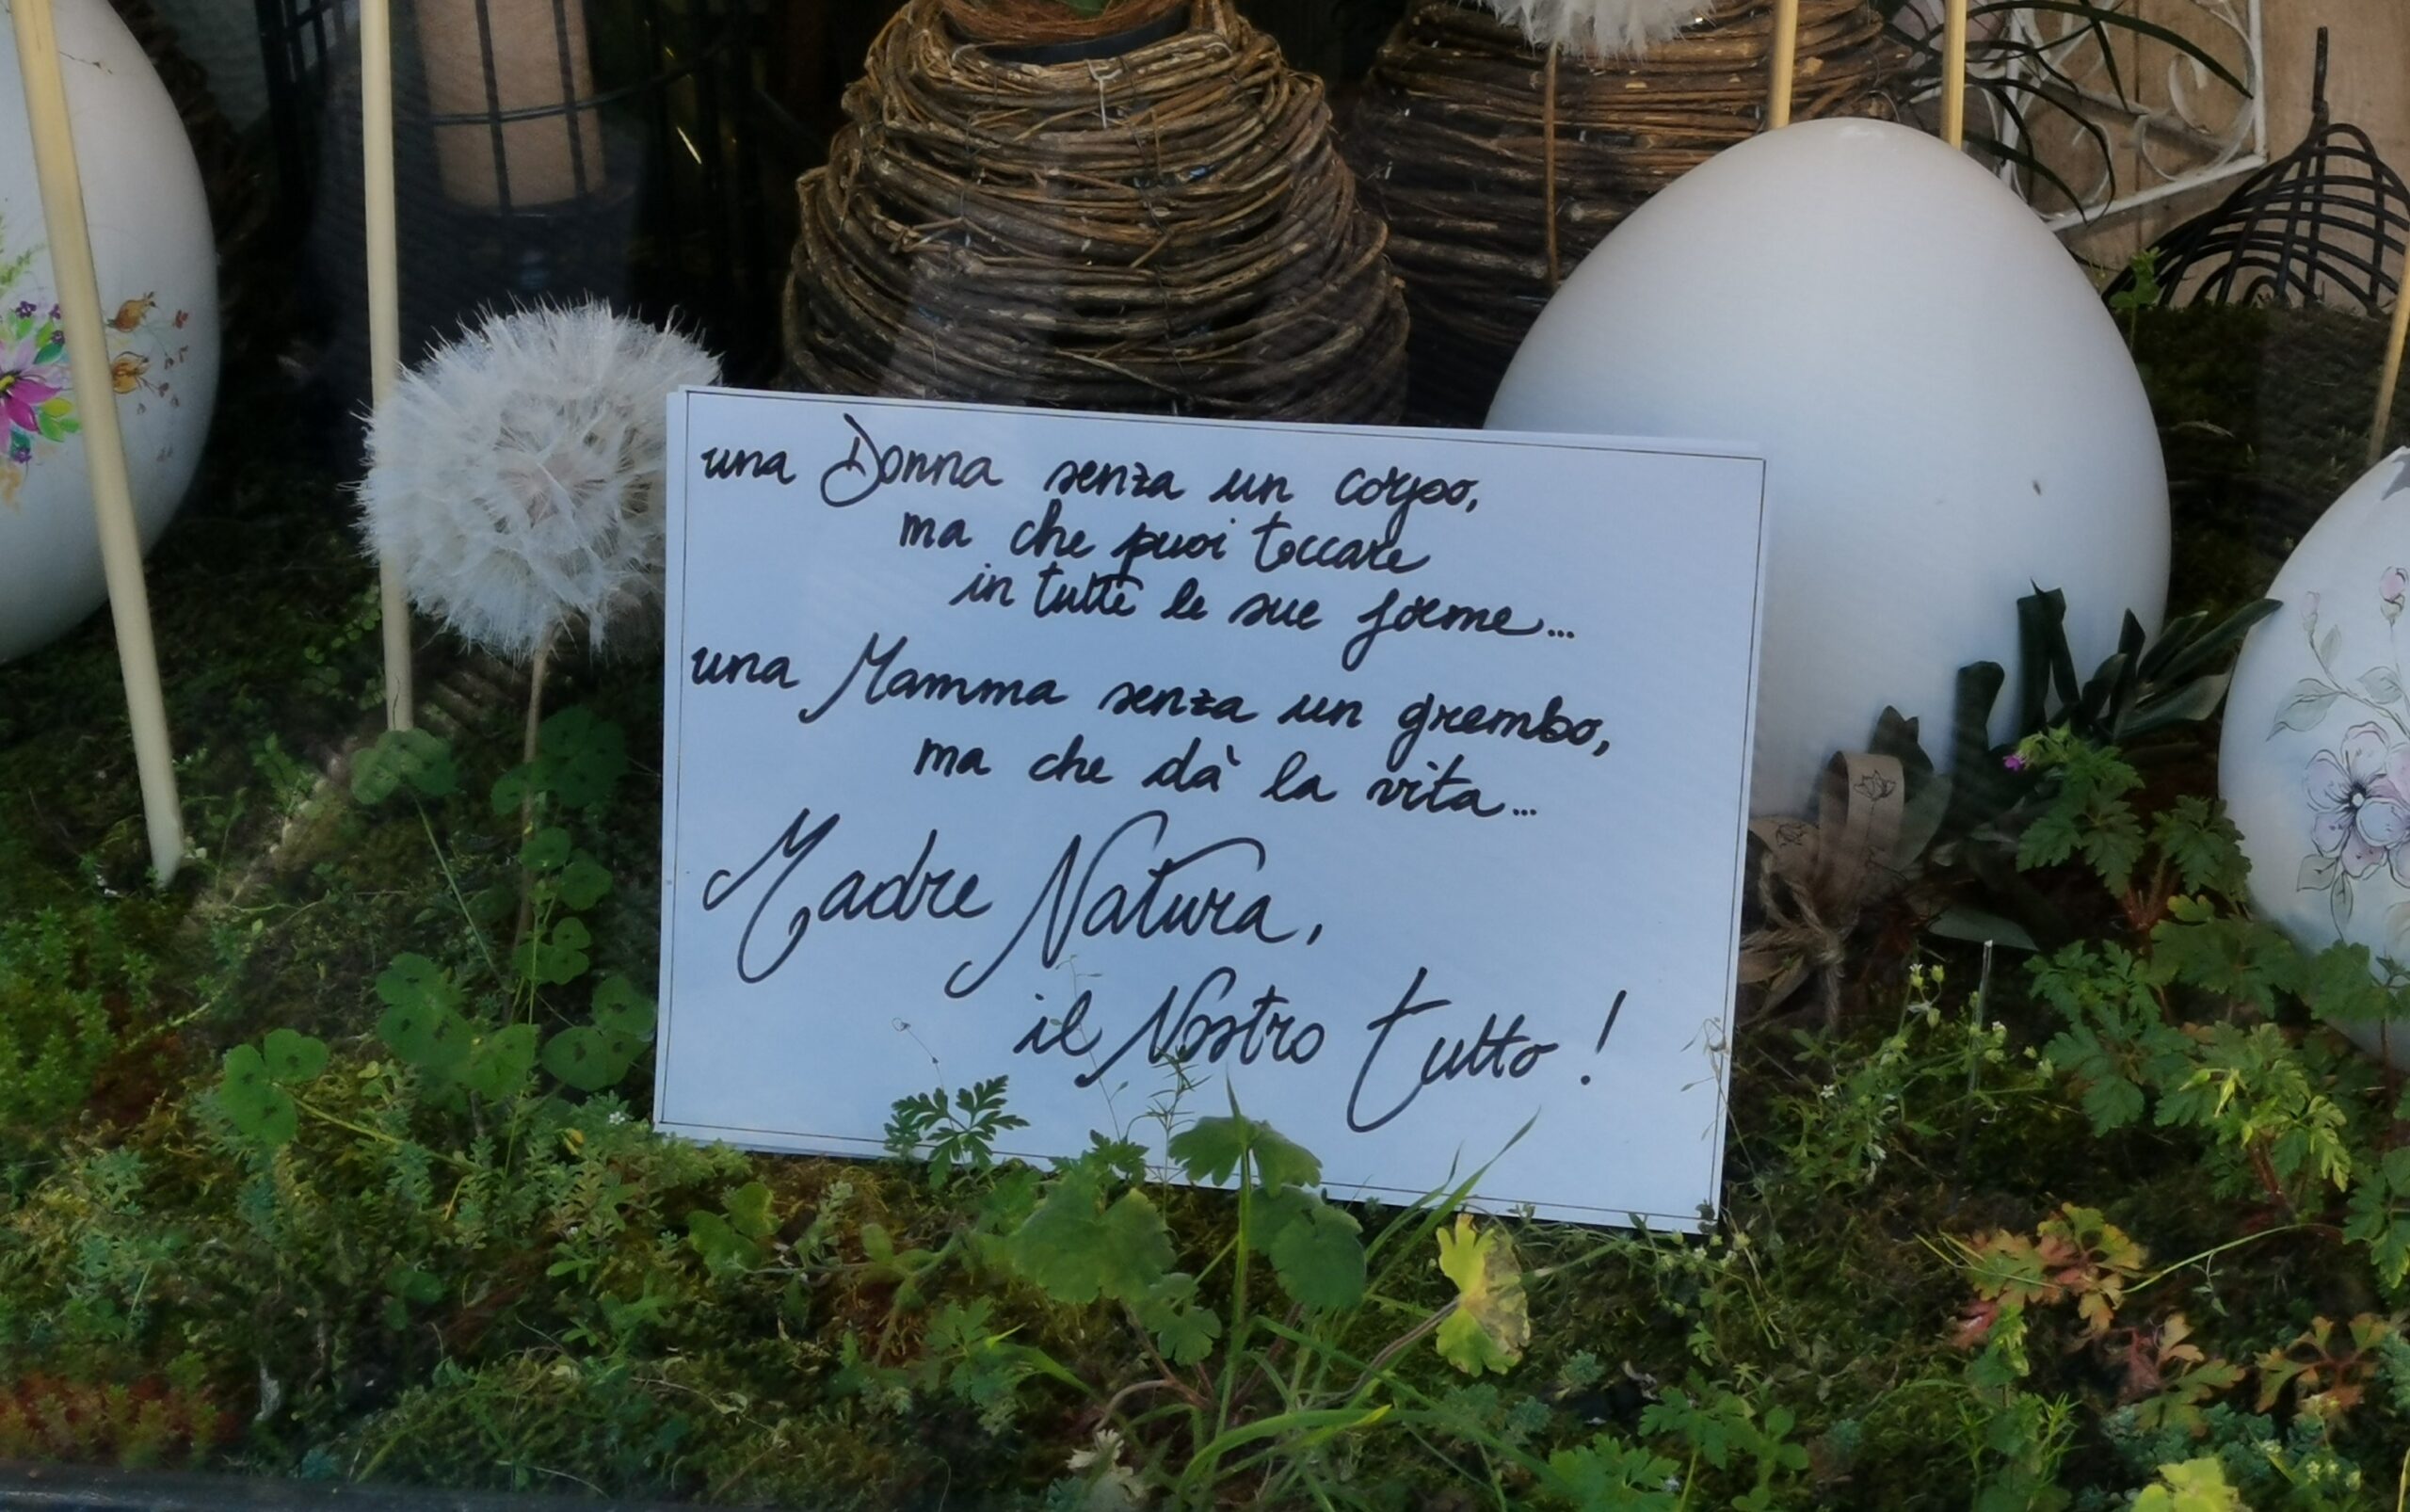 una Donna senza un corpo,
ma che puoi toccare
in tutte le sue forme...
una Mamma senza un grembo,
ma che dà la vita...
Madre Natura,
il Nostro Tutto!